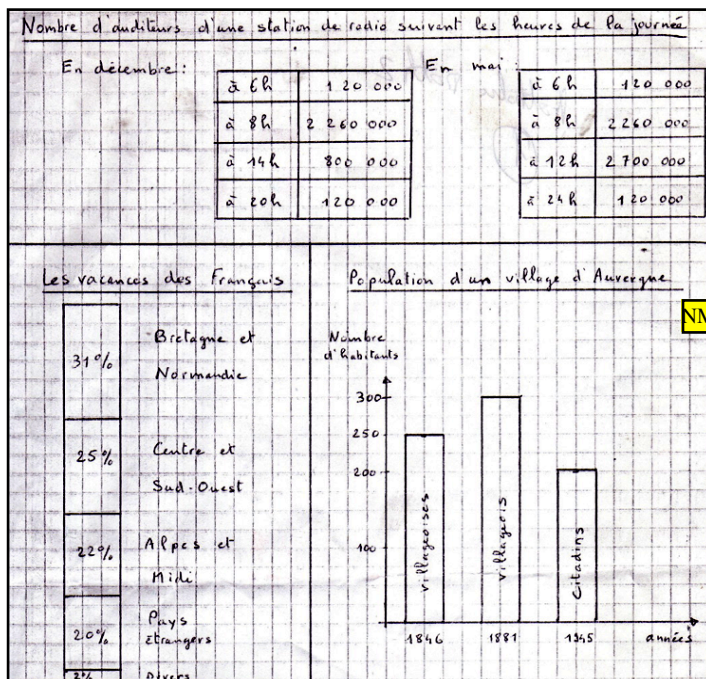 Nombre d'auditeurs d'une station de radio suivant les heures de la journée
En décembre :
à 6h 120 000
à 8h 2 260 000
à 14h 800 000
à 20h 120 000
En mai :
à 6h 120 000
à 8h 2260 000
à 12h 2 700 000
à 24h 120 000
Les vacances des Français
31% Bretagne et
Normandie
25% Centre et
Sud-Ouest
22% Alpes et
Midi
20% Pays
Etrangers
2% Divers
Population d'un village d'Auvergne
NM
Nombre
d'habitants
300
250
200
100
villageoises
villageois
Citadins
1846 1881 1945 années